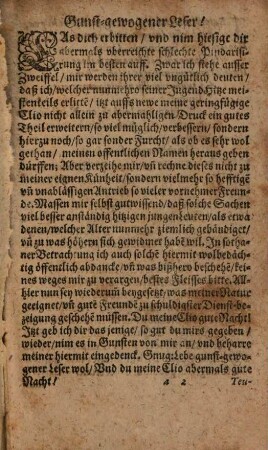 Gunst-gewogener Leser!
LAs dich erbitten/ und nim hiesige dir
abermals überreichte schlechte Pindarisi-
rung im besten auff. Zwar ich stehe ausser
Zweiffel/ mir werden ihrer viel ungütlich deuten/
daß ich/ welcher nunmehro seiner Jugend Hitze mei-
stenteils erlitte/ itzt auffs newe meine geringfügige
Clio nicht allein zu abermahligen Druck ein gutes
Theil erweitern/ so viel müglich/ verbessern/ sondern
hierzu noch/ so gar sonder Furcht/ als ob es sehr wol
gethan/ meinen öffentlichen Namen heraus geben
dürffen; Aber verzeihe mir/ uñ rechne dieses nicht zu
meiner eignen Künheit/ sondern vielmehr so hefftigen
uñ unablässigen Antrieb so vieler vornehmer Freun-
de. Massen mir selbst gutwissend/ daß solche Sachen
viel besser anständig hitzigen jungen Leuten/ als etwa
denen/ welcher Alter nunmehr ziemlich gebändiget/
uñ zu was höhern sich gewidmet habē wil. In sotha-
ner Betrachtung ich auch solche hiermit wolbedäch-
tig öffentlich abdancke/ uñ was bißhero beschehē/ kei-
nes weges mir zu verargen/ bestes Fleisses bitte. All-
hier nun sey wiederum beygesetzt/ was meiner Natur
geeignet/ uñ gute Freunde zu schuldigster Dienst-be-
zeigung geschehē müssen. Du meine Clio gute Nacht!
Itzt geb ich dir das jenige/ so gut du mirs gegeben/
wieder/ nim es in Gunsten von mir an/ und beharre
meiner hiermit eingedenck. Gnug: Lebe gunst-gewo-
gener Leser wol/ Und du meine Clio abermals gute
Nacht!
a 2 Teu-